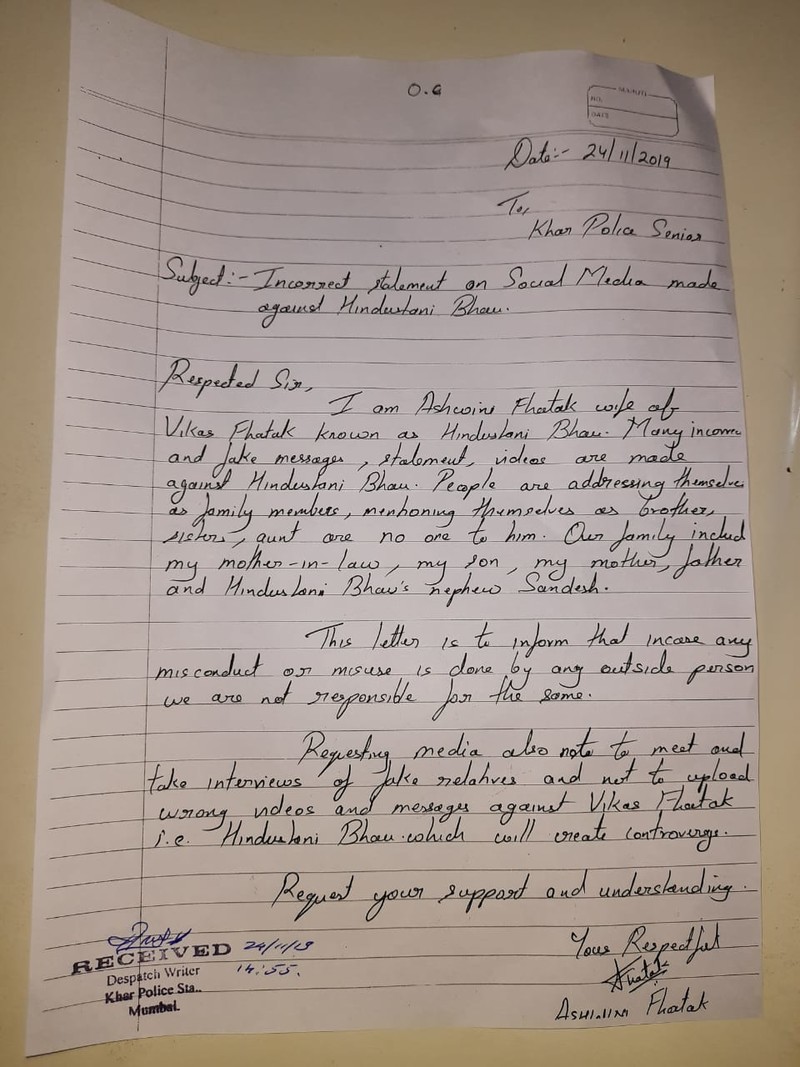 O.C
MARUTI
NO.
DATE
Date:- 24/11/2019
To,
Khar Police Senior
Subject:- Incorrect statement on Social Media made
against Hindustani Bhau.
Respected Sir,
I am Ashwini Fhatak wife of
Vikas Fhatak known as Hindustani Bhau. Many incorre
and fake messages, statement, videos are made
against Hindustani Bhau. People are addressing themselve
as family members, mentioning themselves as brother,
sisters, aunt are no one to him. Our family includ
my mother-in-law, my son, my mother, father
and Hindustani Bhau's nephew Sandesh.
This letter is to inform that incase any
misconduct or misuse is done by any outside person
we are not responsible for the same.
Requesting media also note to meet and
take interviews of fake relatives and not to upload
wrong videos and messages against Vikas Fhatak
i.e. Hindustani Bhau. which will create controversy.
Request your support and understanding.
Yous Respectful
Fhatak
ASHWINI Fhatak
RECEIVED 24/11/19
Despatch Writer 14:55.
Khar Police Sta..
Mumbai.